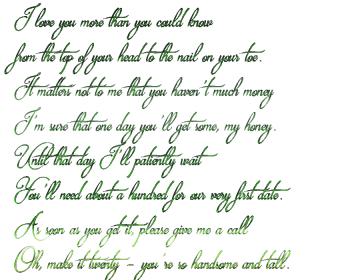 I love you more than you could know
from the top of your head to the nail on your toe.
It matters not to me that you haven't much money
I'm sure that one day you'll get some, my honey.
Until that day I'll patiently wait
You'll need about a hundred for our very first date.
As soon as you get it, please give me a call
Oh, make it twenty - you're so handsome and tall.